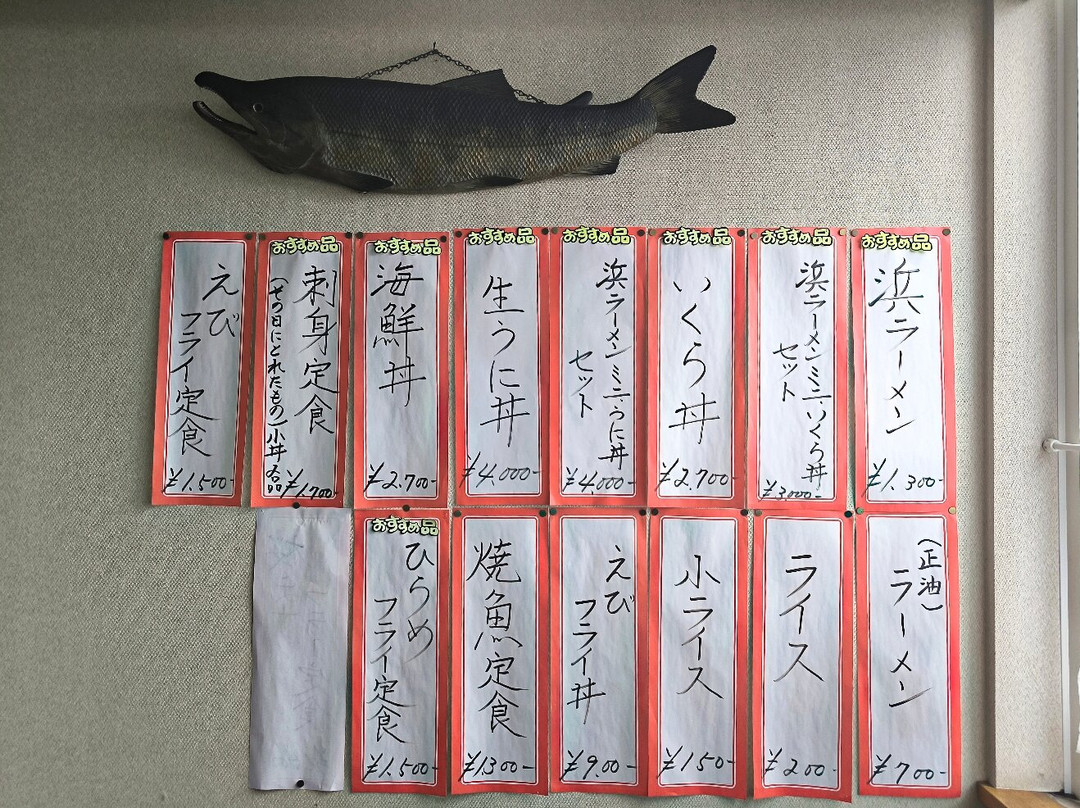 おすすめ品
浜ラーメン
¥1.300-
おすすめ品
浜ラーメンミニいくら丼
セット
¥3000-
おすすめ品
いくら丼
¥2.700-
おすすめ品
浜ラーメンミニうに丼
セット
¥4.000-
おすすめ品
生うに丼
¥4.000-
おすすめ品
海鮮丼
¥2.700-
おすすめ品
刺身定食
(その日にとれたもの)小丼
¥1.700-
えび
フライ定食
¥1.500-
(正油)
ラーメン
¥700-
ライス
¥200-
小ライス
¥150-
えび
フライ丼
¥9.00-
焼魚定食
¥1300-
おすすめ品
ひらめ
フライ定食
¥1.500-